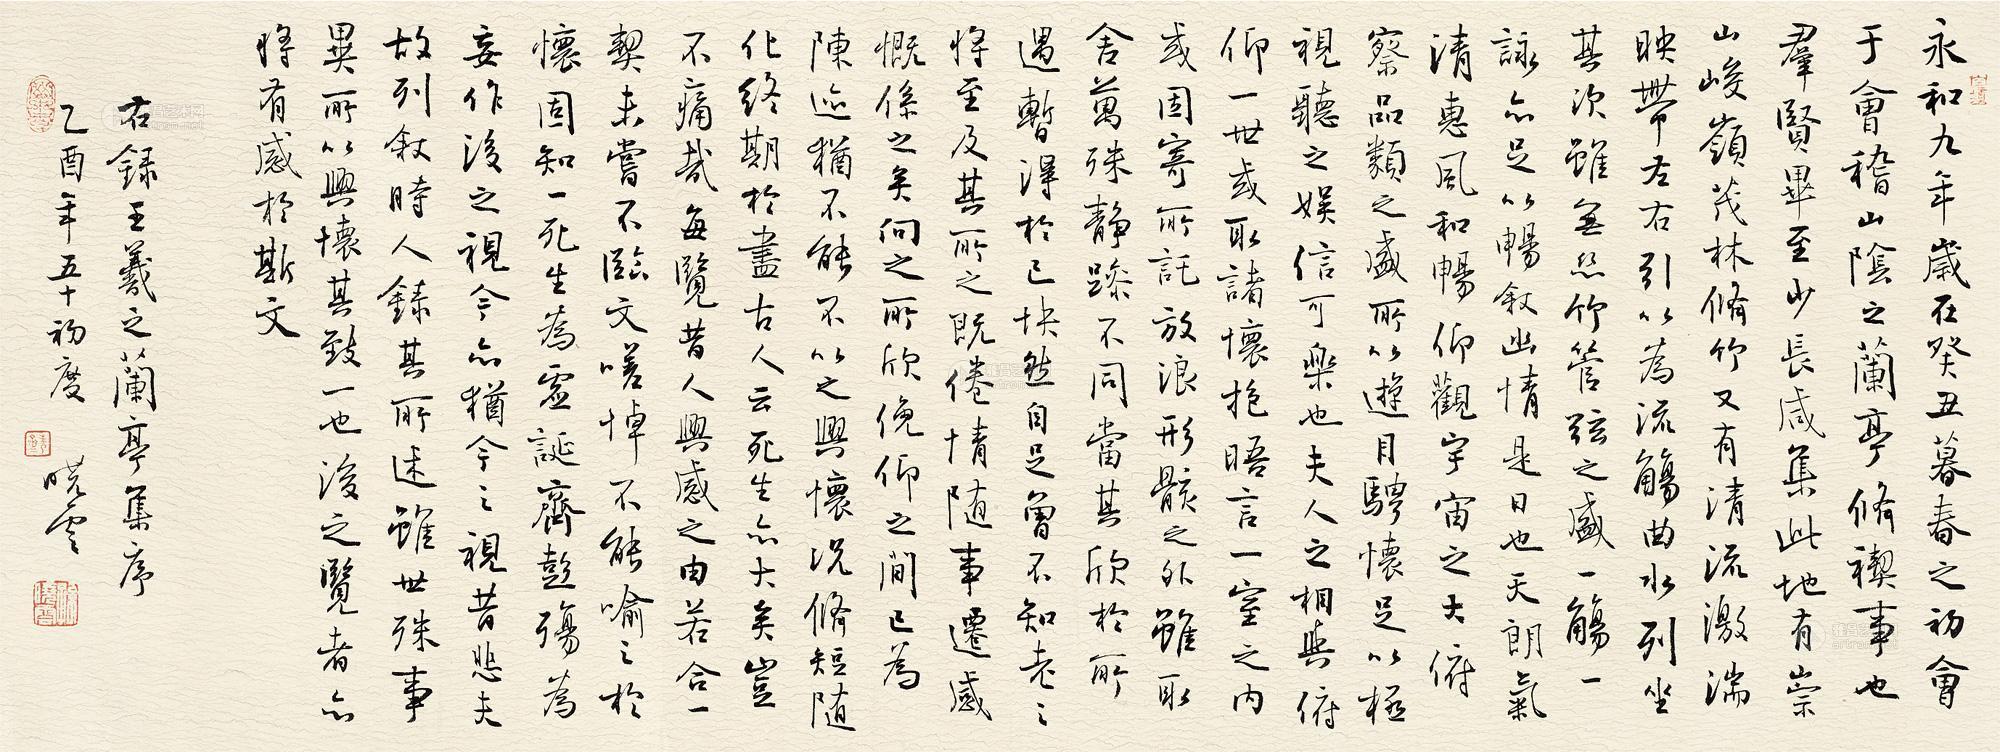 永和九年歲在癸丑暮春之初會
于會稽山陰之蘭亭脩禊事也
羣賢畢至少長咸集此地有崇
山峻嶺茂林脩竹又有清流激湍
映帶左右引以為流觴曲水列坐
其次雖無絲竹管弦之盛一觴一
詠亦足以暢敘幽情是日也天朗氣
清惠風和暢仰觀宇宙之大俯
察品類之盛所以遊目騁懷足以極
視聽之娛信可樂也夫人之相與俯
仰一世或取諸懷抱晤言一室之內
或因寄所託放浪形骸之外雖取
舍萬殊靜躁不同當其欣於所
遇暫得於己怏然自足曾不知老之
將至及其所之既倦情隨事遷感
慨係之矣向之所欣俛仰之間已為
陳迹猶不能不以之興懷況脩短隨
化終期於盡古人云死生亦大矣豈
不痛哉每覽昔人興感之由若合一
契未嘗不臨文嗟悼不能喻之於
懷固知一死生為虛誕齊彭殤為
妄作後之視今亦猶今之視昔悲夫
故列敘時人錄其所述雖世殊事
異所以興懷其致一也後之覽者亦
將有感於斯文
右錄王羲之蘭亭集序
乙酉年五十初度 曉雲